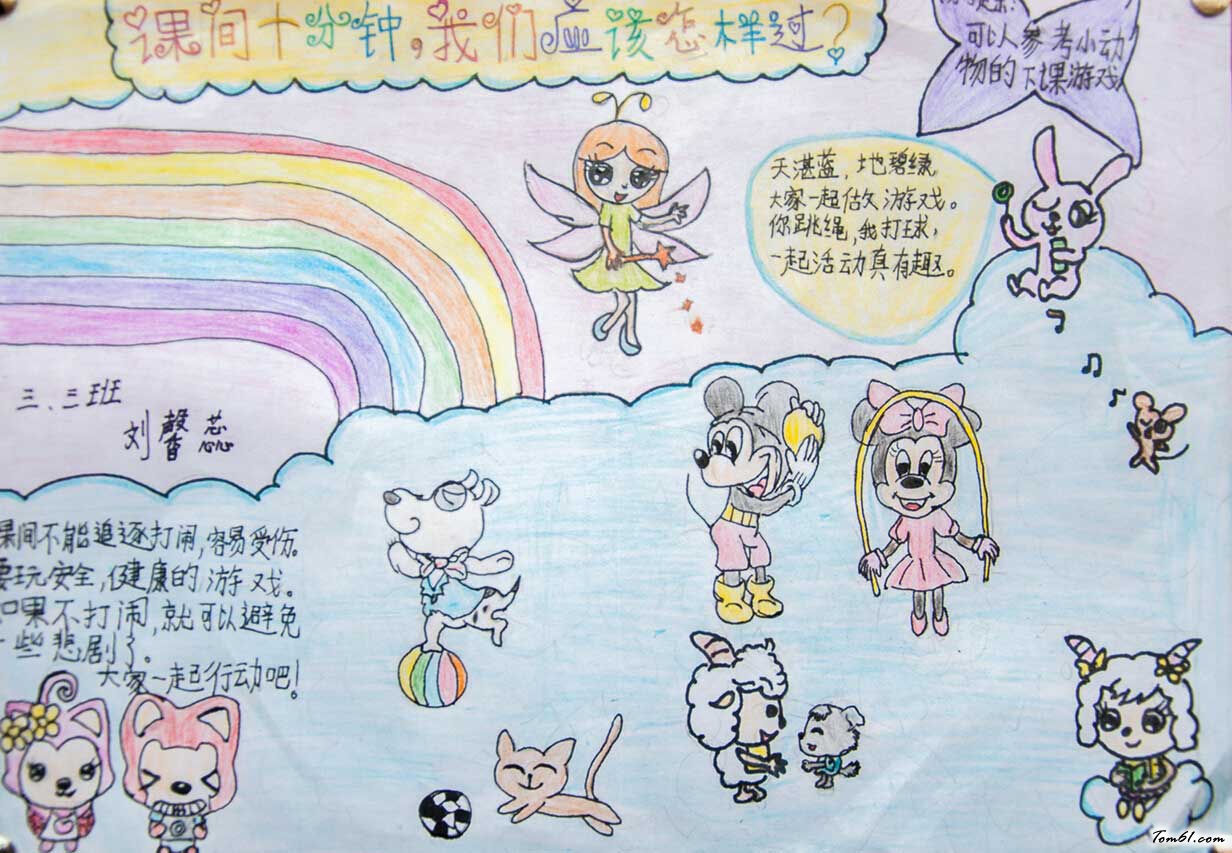 课间十分钟,我们应该怎样过?
可以参考小动
物的下课游戏
天湛蓝,地碧绿
大家一起做游戏。
你跳绳,我打球,
一起活动真有趣。
三、三班
刘馨蕊
课间不能追逐打闹,容易受伤。
要玩安全,健康的游戏。
如果不打闹,就可以避免
一些悲剧了。
大家一起行动吧!
Tom61.com